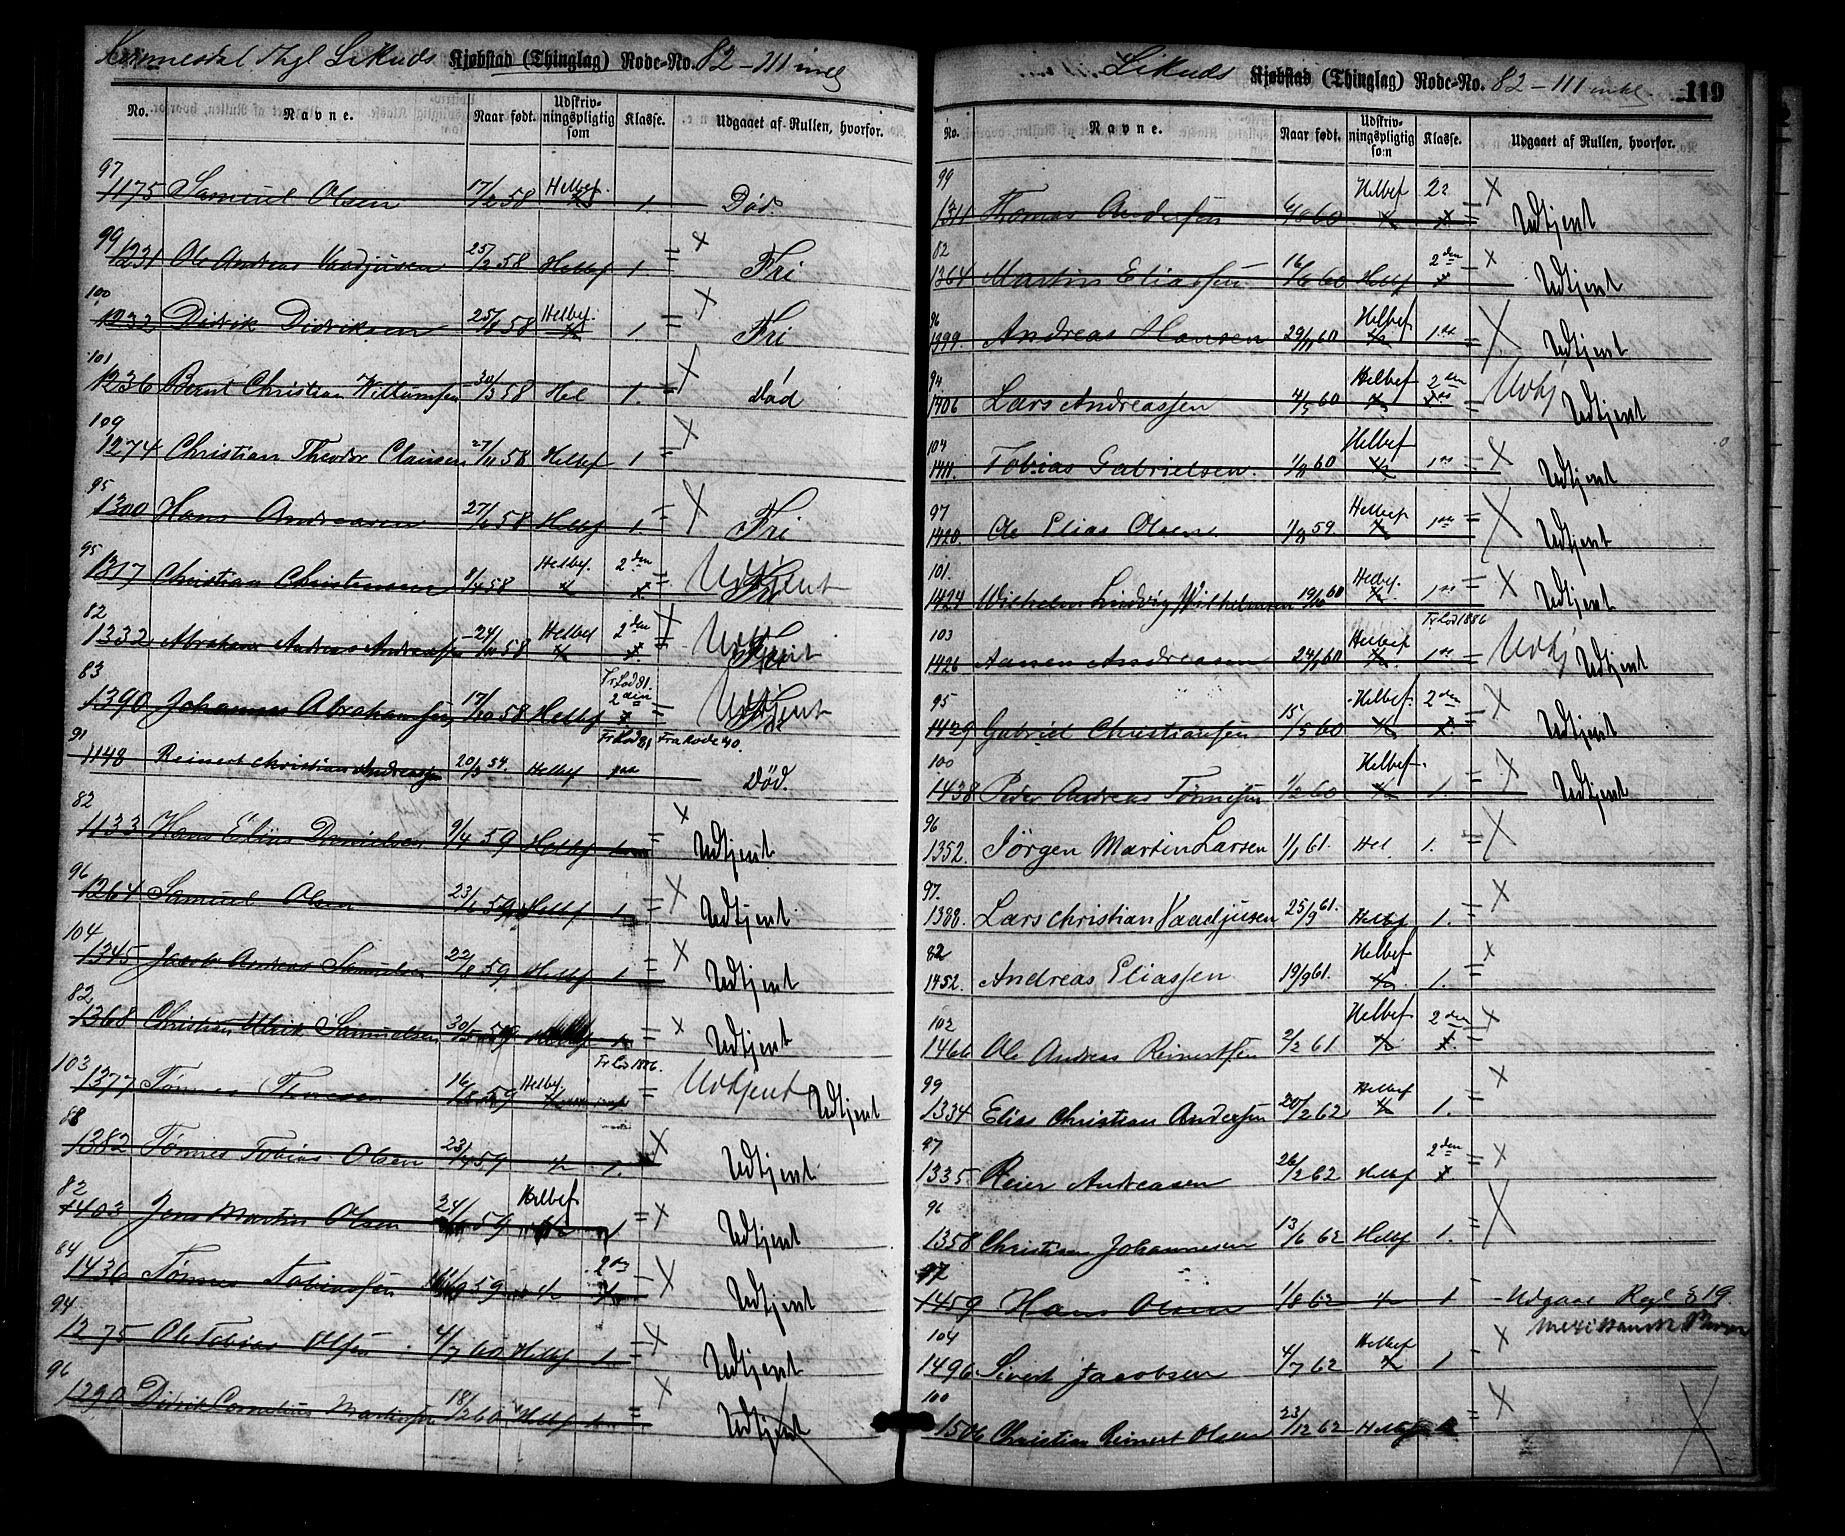 Thgl Likuds Kjøbstad (Thinglag) Rode-No. 82 - 111 incl
No. Navne. Naar født. Udskriv-ningspligtig som Klasse. Udgaaet af Rullen, hvorfor.
97
1175 Samuel Olsen 17/2 58 Helbef. 1. Død.
99
1231 Ole Andreas Vaadjusen 25/2 58 Helbef 1. = x Fri
100
1232 Didrik Didriksen 25/4 58 Helbef. 1. = x Fri
101
1236 Bernt Christian Willumsen 30/3 58 Hel 1. = x Død
109
1274 Christian Theodor Clausen 27/11 58 Helbef 1 = x
95
1300 Hans Andreasen 27/6 58 Helbef 1. = x Fri
95
1317 Christian Christensen 8/4 58 Helbef. 2den = Udtjent
82
1332 Abraham Andreas Andreassen 24/11 58 Helbef 2den = Udtjent
83 Fr Lod 81.
1390 Johannes Abrahamsen 17/10 58 Helbef 2den = Udtjent
91 Fr Lod 81 Fra Rode 40.
1148 Reinert Christian Andreassen 20/3 54. Helbef Død.
82
1133 Hans Elias Danielsen 9/4 59 Helbef = x Udtjent
96
1264 Samuel Olsen 23/6 59 Helbef 1. = x Udtjent.
104
1345 Jacob Andreas Samuelsen 22/8 59 Helbef 1. = x Udtjent
82
1368 Christian Ulrik Samuelsen 30/5 59 = x Udtjent
103 Fr Lod 1886.
1377 Tønnes Thomesen 16/8 59 Helbef. = Udtjent Udtjent
88
1382 Tønnes Tobias Olsen 23/4 59 1. x Udtjent
82
1403 Jens Martin Olsen 24/ 59 Helbef 1 = x Udtjent
84
1436 Tønnes Tobiassen 59 2den = x Udtjent
94
1275 Ole Tobias Olsen 4/7 60 Helbef 1. = x Udtjent
96
1290 Didrik Cornelius Martinsen 18/2 60 Helbef = x Udtjent
Likuds Kjøbstad (Thinglag) Rode-No. 82 - 111 inkl 119
No. Navne. Naar født. Udskriv-ningspligtig som Klasse. Udgaaet af Rullen, hvorfor.
99
1311 Thomas Andersen 6/8 60 Helbef 2n = x Udtjent
82
1364 Martin Eliassen 16/6 60 Helbf 2den = x Udtjent
96
1399. Andreas Hansen 29/11 60 Helbef 1ste = x Udtjent
94
1406 Lars Andreassen 4/5 60 Helbef 2den = Udtj Udtjent
104
1411. Tobias Gabrielsen. 1/8 60 Helbef 1ste = x Udtjent
97
1420. Ole Elias Olsen. 1/8 59. Helbef 1ste = x Udtjent
101.
1424 Wilhelm Ludvig Wilhelmsen 19/10 60 Helbef. 1ste = x Udtjent
103 Fr Lod 1886
1426 Aanen Andreasen 24/ 60 Helbef 1ste = Udtj Udtjent
95
1429 Gabriel Christiansen 15/5 60 Helbef. 2den = x Udtjent
100
1438 Peder Andreas Tønnesen 1/2 60 Helbef. 1. = x Udtjent
96
1352. Jørgen Martin Larsen 1/1 61. Hel 1. = x
97.
1388. Lars Christian Vaadjusen 25/9 61. Helbef 1. = x
82
1452. Andreas Eliassen 19/9 61. Helbef 1. = x
102
1466 Ole Andreas Reinertsen 2/2 61 Helbef 2den = x
99
1334 Elias Christian Andersen 20/2 62 Helbef 1. = x
97
1335. Reier Andreasen 26/2 62 Helbf 2den = x
96
1358 Christian Johannesen 13/6 62 Helbf 1. = x
97
1459 Hans Olsen 1/8 62 1 - Udgaar Regl § 19.
104
1496 Sivert Jacobsen 4/7 62 Helbef 1 - x
100
1506 Christian Reinert Olsen 23/12 62 = x